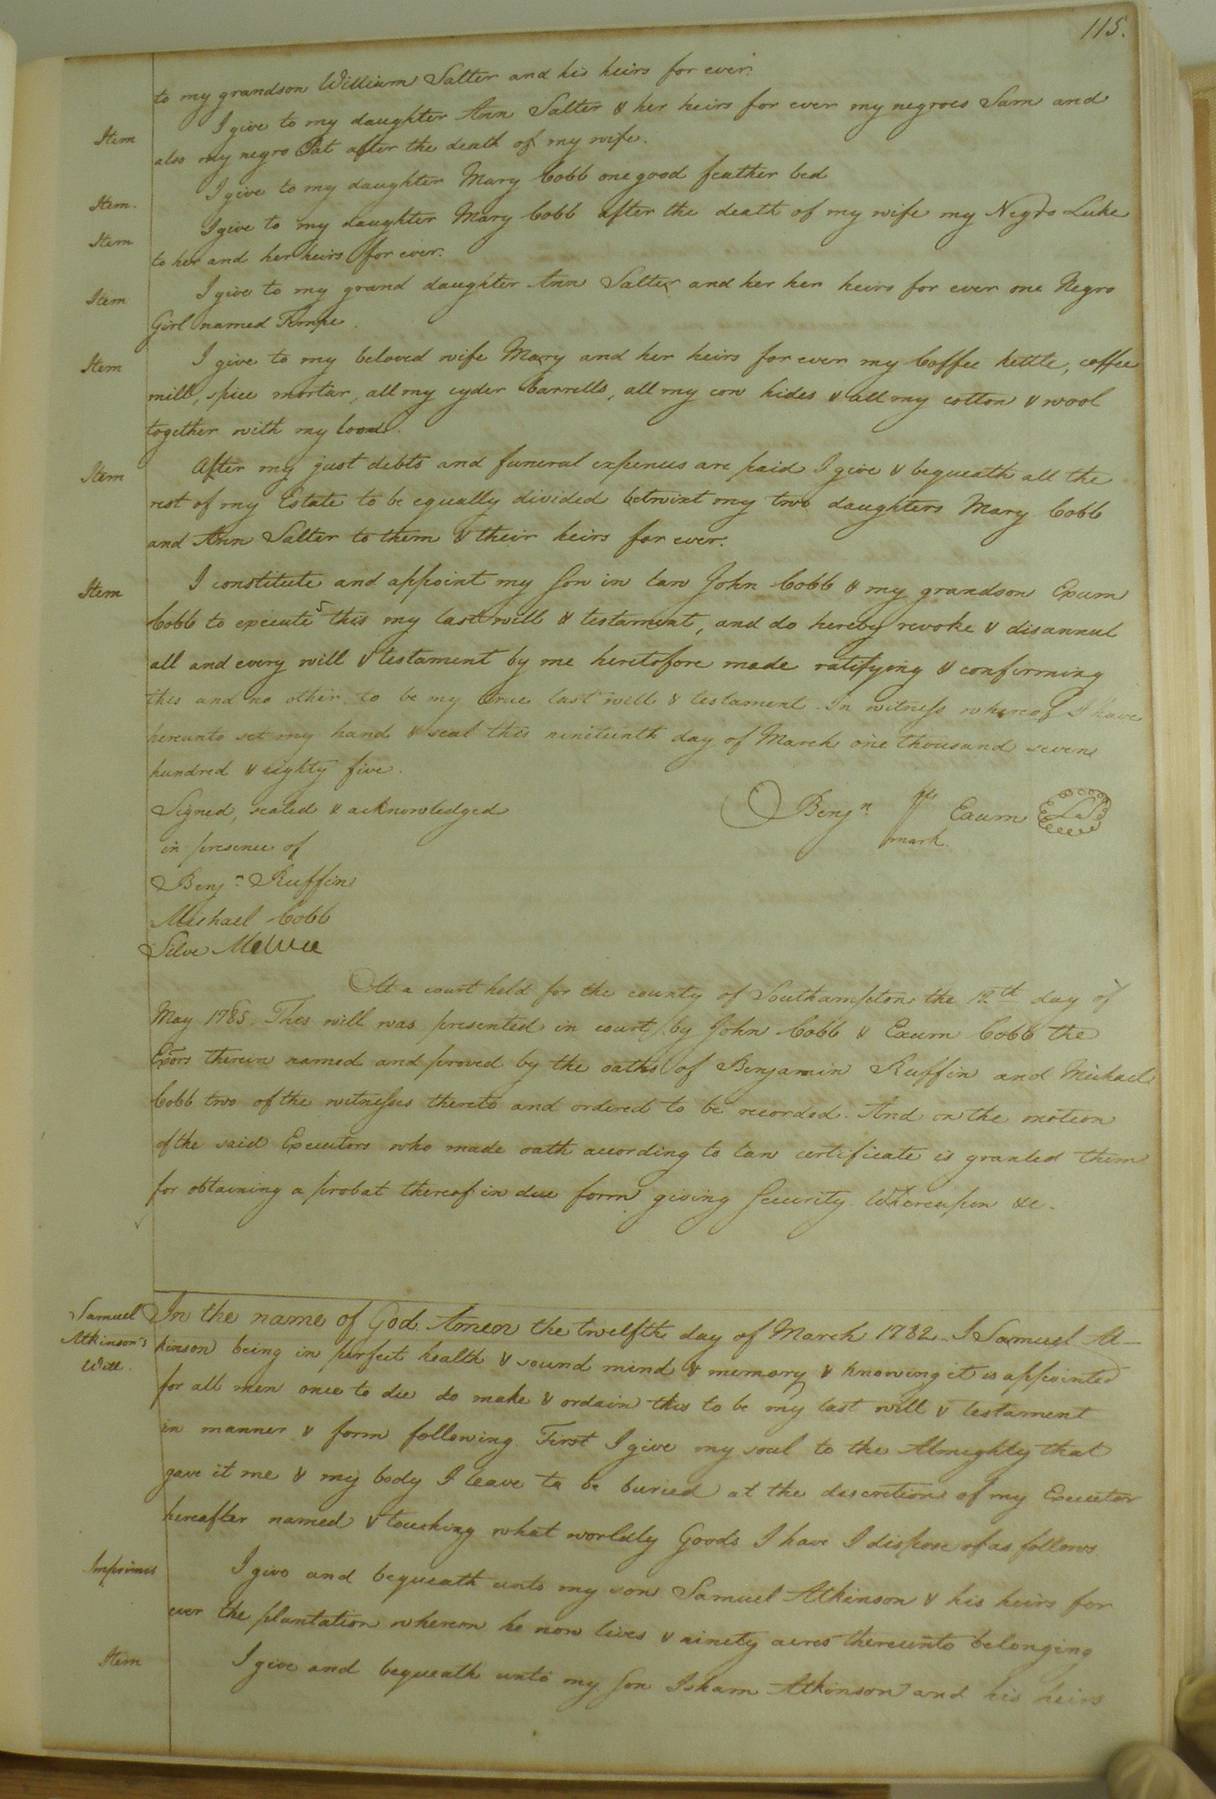 115.
to my grandson William Salter and his heirs for ever.
Item I give to my daughter Ann Salter & her heirs for ever my negroes Sam and
also my negro Pat after the death of my wife.
Item. I give to my daughter Mary Cobb one good feather bed
Item I give to my daughter Mary Cobb after the death of my wife my Negro Luke
to her and her heirs for ever.
Item I give to my grand daughter Ann Salter and her her heirs for ever one Negro
Girl named Tempe.
Item I give to my beloved wife Mary and her heirs for ever my Coffee kettle, coffee
mill, spice mortar, all my cyder barrells, all my cow hides & all my cotton & wool
together with my loom.
Item After my just debts and funeral expences are paid I give & bequeath all the
rest of my Estate to be equally divided betwixt my two daughters Mary Cobb
and Ann Salter to them & their heirs for ever.
Item I constitute and appoint my Son in law John Cobb & my grandson Exum
Cobb to execute this my last will & testament, and do hereby revoke & disannul
all and every will & testament by me heretofore made ratifying & confirming
this and no other to be my true last will & testament. In witness whereof I have
hereunto set my hand & seal this nineteenth day of March one thousand seven
hundred & eighty five.
Signed, sealed & acknowledged
in presence of
Benjn his mark Exum LS
Benjn Ruffin
Michael Cobb
Silve
At a court held for the county of Southampton the 12th day of
May 1785. This will was presented in court by John Cobb & Exum Cobb the
Exors therein named and proved by the oaths of Benjamin Ruffin and Michael
Cobb two of the witnesses thereto and ordered to be recorded. And on the motion
of the said Executors who made oath according to law certificate is granted them
for obtaining a probat thereof in due form giving Security. Whereupon &c.
Samuel Atkinson's Will.
In the name of God Amen the twelfth day of March 1782. I Samuel At-
kinson being in perfect health & sound mind & memory & knowing it is appointed
for all men once to die do make & ordain this to be my last will & testament
in manner & form following. First I give my soul to the Almighty that
gave it me & my body I leave to be buried at the discretion of my Executor
hereafter named & touching what worldly Goods I have I dispose of as follows
Imprimis I give and bequeath unto my son Samuel Atkinson & his heirs for
ever the plantation whereon he now lives & ninety acres thereunto belonging
Item I give and bequeath unto my Son Isham Atkinson and his heirs